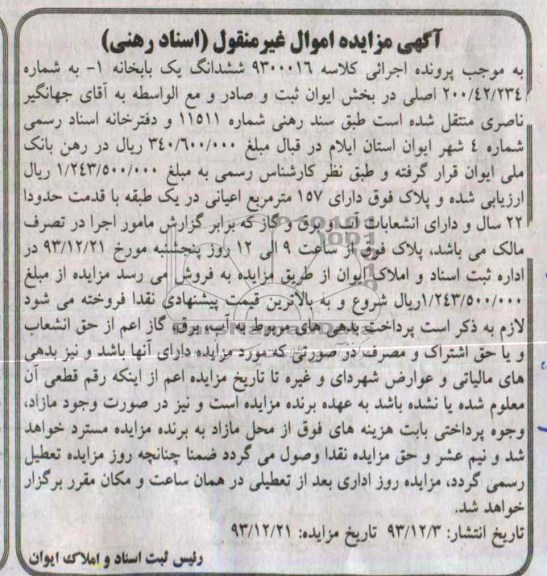 آگهی مزایده اموال غیرمنقول (اسناد رهنی)
به موجب پرونده اجرائی کلاسه ۹۳۰۰۰۱۶ ششدانگ یک بابخانه ۱- به شماره
۲۰۰/۴۲/۲۳۴ اصلی در بخش ایوان ثبت و صادر و مع الواسطه به آقای جهانگیر
ناصری منتقل شده است طبق سند رهنی شماره ۱۱۵۱۱ و دفترخانه اسناد رسمی
شماره ٤ شهر ایوان استان ایلام در قبال مبلغ ۳۴۰/۶۰۰/۰۰۰ ریال در رهن بانک
ملی ایوان قرار گرفته و طبق نظر کارشناس رسمی به مبلغ ۱/۲۴۳/۵۰۰/۰۰۰ ریال
ارزیابی شده و پلاک فوق دارای ۱۵۷ مترمربع اعیانی در یک طبقه با قدمت حدودا
۲۲ سال و دارای انشعابات آب و برق و گاز که برابر گزارش مامور اجرا در تصرف
مالک می باشد، پلاک فوق از ساعت ۹ الی ۱۲ روز پنجشنبه مورخ ۹۳/۱۲/۲۱ در
اداره ثبت اسناد و املاک ایوان از طریق مزایده به فروش می رسد مزایده از مبلغ
۱/۲۴۳/۵۰۰/۰۰۰ریال شروع و به بالاترین قیمت پیشنهادی نقدا فروخته می شود
لازم به ذکر است پرداخت بدهی های مربوط به آب، برق، گاز اعم از حق انشعاب
و یا حق اشتراک و مصرف در صورتی که مورد مزایده دارای آنها باشد و نیز بدهی
های مالیاتی و عوارض شهردای و غیره تا تاریخ مزایده اعم از اینکه رقم قطعی آن
معلوم شده یا نشده باشد به عهده برنده مزایده است و نیز در صورت وجود مازاد،
وجوه پرداختی بابت هزینه های فوق از محل مازاد به برنده مزایده مسترد خواهد
شد و نیم عشر و حق مزایده نقدا وصول می گردد ضمنا چنانچه روز مزایده تعطیل
رسمی گردد، مزایده روز اداری بعد از تعطیلی در همان ساعت و مکان مقرر برگزار
خواهد شد.
تاریخ انتشار: ۹۳/۱۲/۳ تاریخ مزایده: ۹۳/۱۲/۲۱
رئیس ثبت اسناد و املاک ایوان